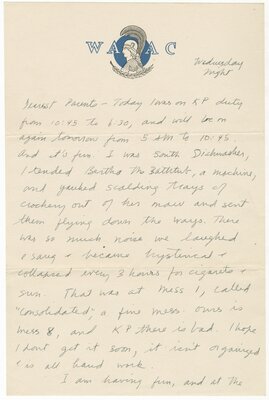 WAAC
Wednesday
night
Dearest Parents – Today I was on KP duty
from 10:45 to 6:30, and will be on
again tomorrow from 5 AM to 10:45,
and it's fun. I was South Dishwasher,
I tended Bertha the Bathtub, a machine,
and yanked scalding trays of
crockery out of her maw and sent
them flying down the ways. There
was so much noise we laughed
& sang & became hysterical &
collapsed every 3 hours for cigarets &
sun. That was at Mess 1, called
"Consolidated", a fine mess. ours is
mess 8, and KP there is bad. I hope
I dont get it soon, it isn't organized
& is all hand work.
I am having fun, and at the